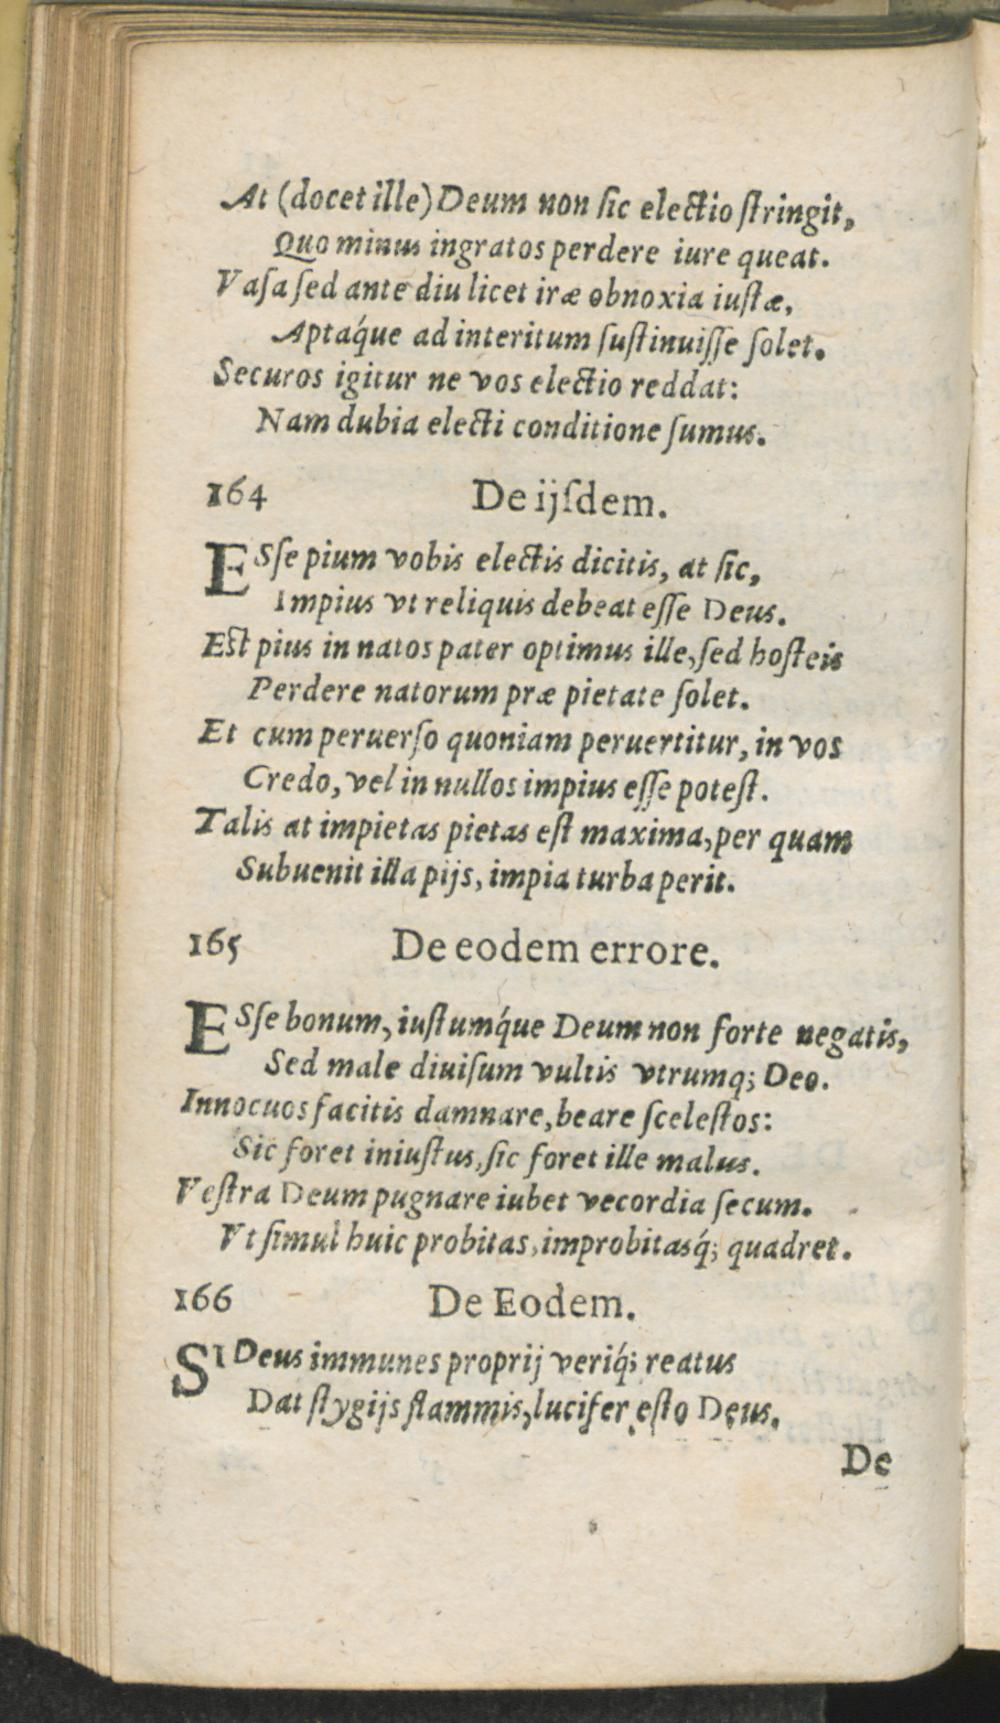 At (docet ille) Deum non ſic electio ſtringit,
Quo minus ingratos perdere iure queat.
Vaſa ſed ante diu licet iræ obnoxia iuſtæ,
Aptáque ad interitum ſuſtinuiſſe ſolet.
Securos igitur ne vos electio reddat:
Nam dubia electi conditione ſumus.
164 De ijſdem.
ESſe pium vobis electis dicitis, at ſic,
Impius vt reliquis debeat eſſe Deus.
Est pius in natos pater optimus ille, ſed hoſteis
Perdere natorum præ pietate ſolet.
Et cum peruerſo quoniam peruertitur, in vos
Credo, vel in nullos impius eſſe poteſt.
Talis at impietas pietas eſt maxima, per quam
Subuenit illa pijs, impia turba perit.
165 De eodem errore.
ESſe bonum, iuſtumq́ue Deum non forte negatis,
Sed male diuiſum vultis vtrumq; Deo.
Innocuos facitis damnare, beare ſceleſtos:
Sic foret iniuſtus, ſic foret ille malus.
Veſtra Deum pugnare iubet vecordia ſecum.
Vt ſimul huic probitas, improbitasq́; quadret.
166 De Eodem.
SI Deus immunes proprij veriq́; reatus
Dat ſtygijs flammis, lucifer eſto Deus.
De